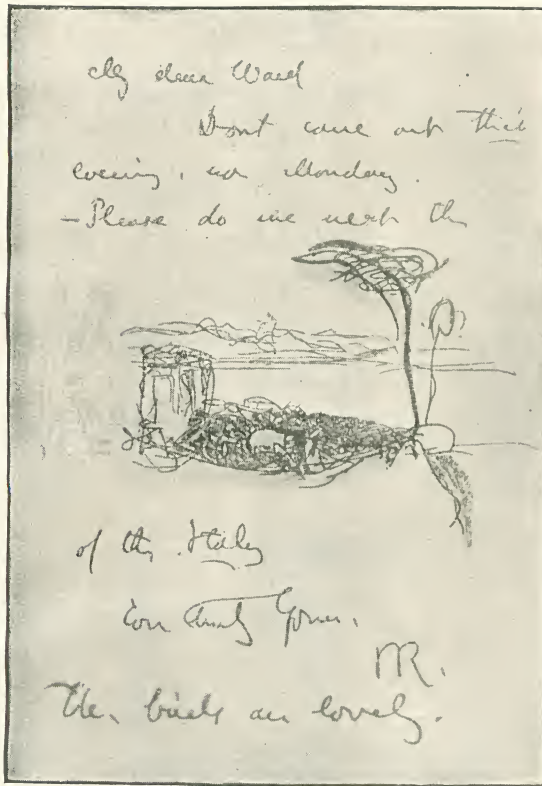 My dear Ward
Dont come out this
evening, nor Monday.
—Please do me next the
of the Italy
Ever truly Yours,
JR.
The birds are lovely.